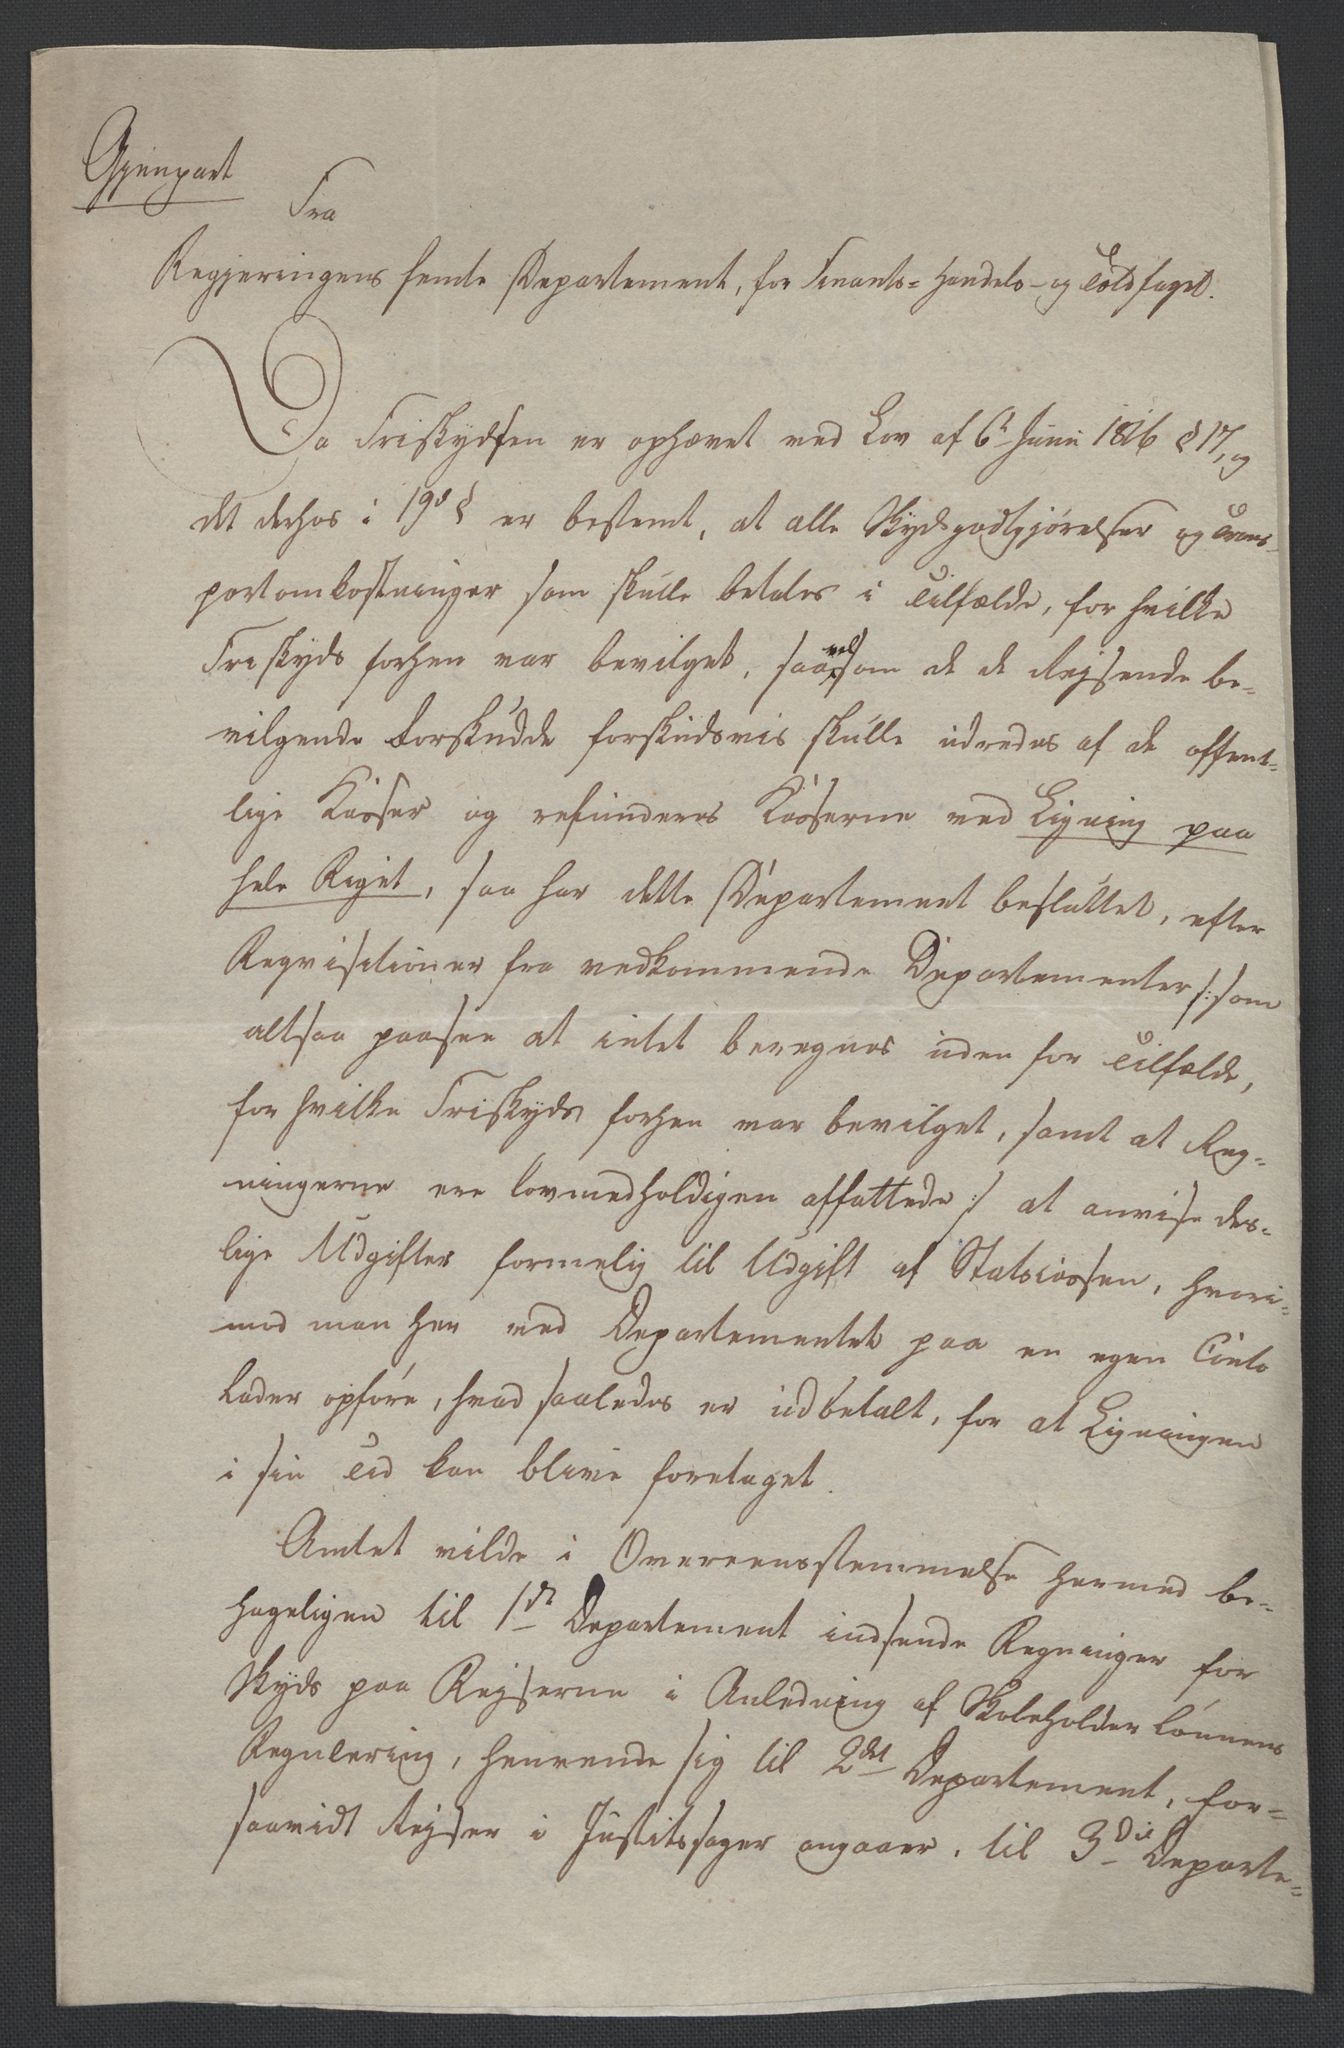 Gjenpart
Fra
Regjeringens femte Departement, for Finants- Handels- og Toldfaget.
Da Friskydsen er ophævet ved Lov af 6te Juni 1816 § 17, og
det derhos i 19de § er bestemt, at alle Skydsgodtgjørelser og Trans-
portomkostninger som skulle betales i Tilfælde, for hvilke
Friskyds forhen var bevilget, saavelsom de de Rejsende be-
vilgende Forskudde forskudsvis skulle udredes af de offent-
lige Kasser og refunderes Kasserne ved Ligning paa
hele Riget, saa har dette Departement besluttet, efter
Reqvisitioner fra vedkommende Departementer /: som
altsaa paasee at intet beregnes uden for Tilfælde,
for hvilke Friskyds forhen var bevilget, samt at Reg-
ningerne ere lovmedholdigen affattede :/ at anvise des-
lige Udgifter formelig til Udgift af Statscassen, hvori-
mod man her ved Departementet paa en egen Conto
lader opføre, hvad saaledes er udbetalt, for at Ligningen
i sin Tid kan blive foretaget.
Amtet vilde i Overeensstemmelse hermed be-
hageligen til 1ste Departement indsende Regninger for
Skyds paa Rejserne i Anledning af Skoleholderlønnens
Regulering, henvende sig til 2det Departement, for-
saavidt Rejser i Justitssager angaaer, til 3die Departe-